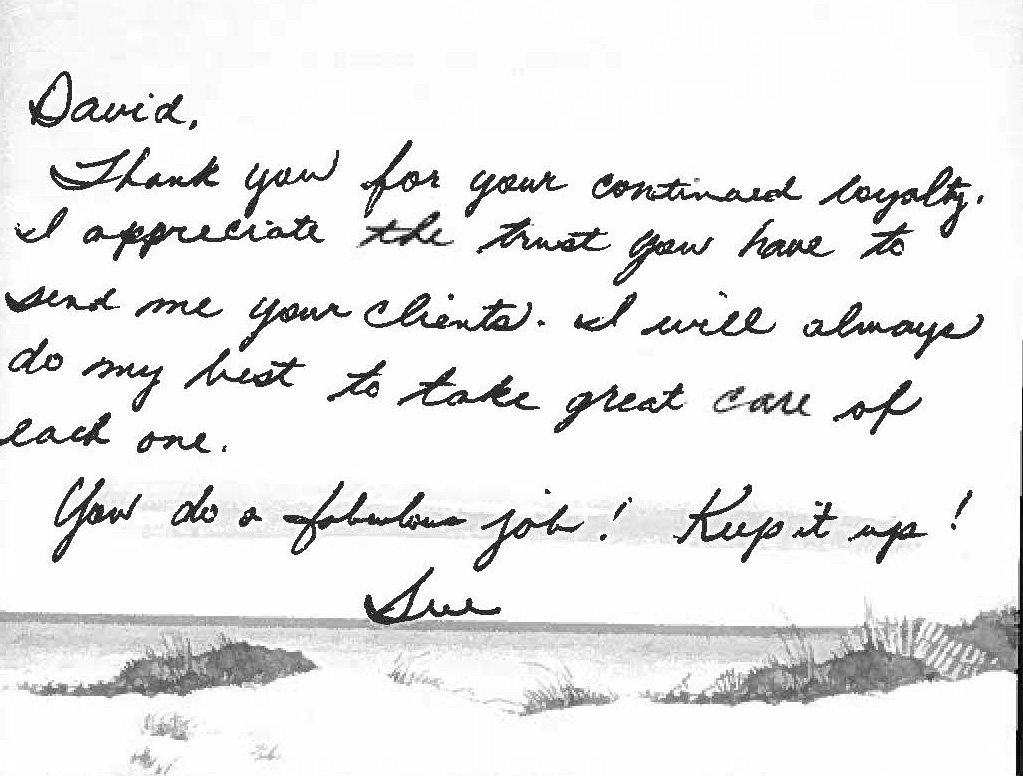 David,
Thank you for your continued loyalty.
I appreciate the trust you have to
send me your clients. I will always
do my best to take great care of
each one.
You do a fabulous job! Keep it up!
Sue